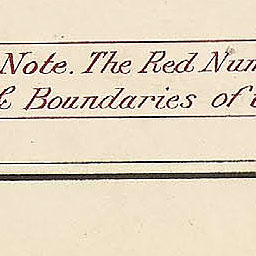 Note. The Red Num
& Boundaries of